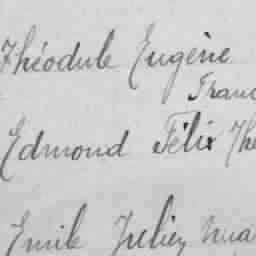 Théodule Eugène
Franc
Edmond Félix Thé
Emile Julien